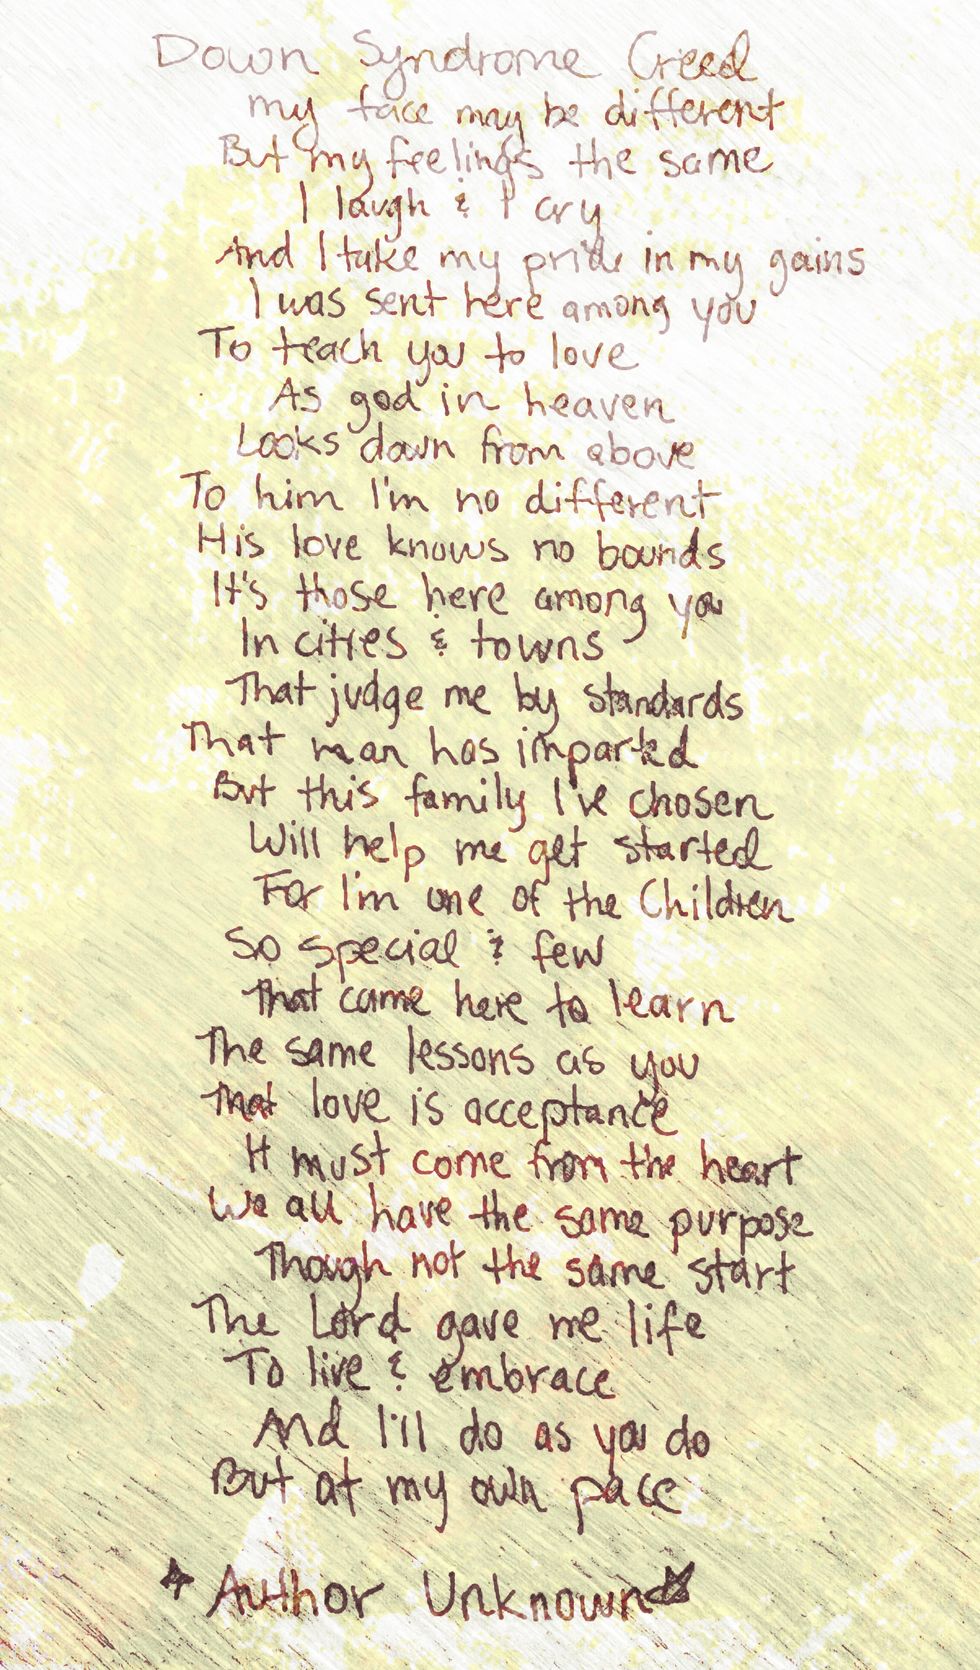 Down Syndrome Creed
my face may be different
But my feelings the same
I laugh & I cry
And I take my pride in my gains
I was sent here among you
To teach you to love
As god in heaven
Looks down from above
To him I'm no different
His love knows no bounds
It's those here among you
In cities & towns
That judge me by standards
That man has imparted
But this family I've chosen
Will help me get started
For I'm one of the Children
So special & few
That came here to learn
The same lessons as you
That love is acceptance
It must come from the heart
We all have the same purpose
Though not the same start
The Lord gave me life
To live & embrace
And I'll do as you do
But at my own pace
Author Unknown